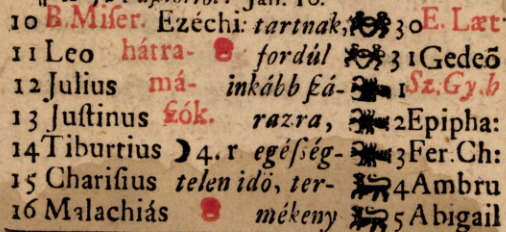 10 B. Miſer. Ezéchi: tartnak, 30 E. Læt
11 Leo hátra- fordúl 31 Gedeõ
12 Julius má- inkább ſzá- 1 Sz. Gy. h
13 Juſtinus ſzók. razra, 2 Epipha:
14 Tiburtius ☽ 4. r egéſség- 3 Fer. Ch:
15 Chariſius telen idö, ter- 4 Ambru
16 Malachiás mékeny 5 Abigail